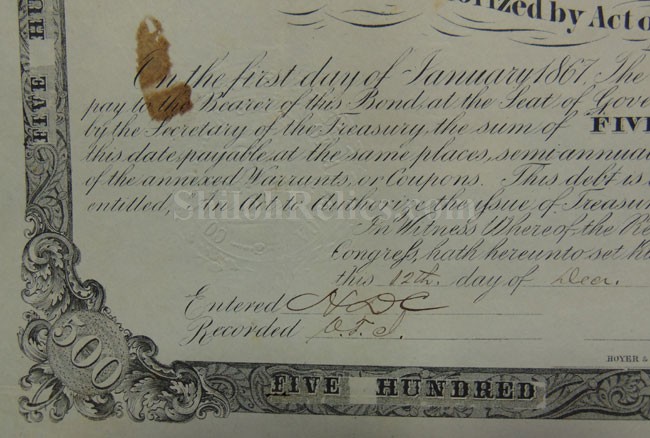 orized by Act o
On the first day of January 1867. The
pay to the Bearer of this Bond, at the Seat of Gove
by the Secretary of the Treasury, the sum of FIVE
this date, payable at the same places, semi annua
of the annexed Warrants, or Coupons. This debt is
entitled, "An Act to Authorize the issue of Treasur
ShilohRelics.com
In Witness Whereof the Re
Congress, hath hereunto set h
this 12th. day of Decr.
Entered HDC
Recorded
HOYER &
FIVE HUNDRED
500
FIVE HU